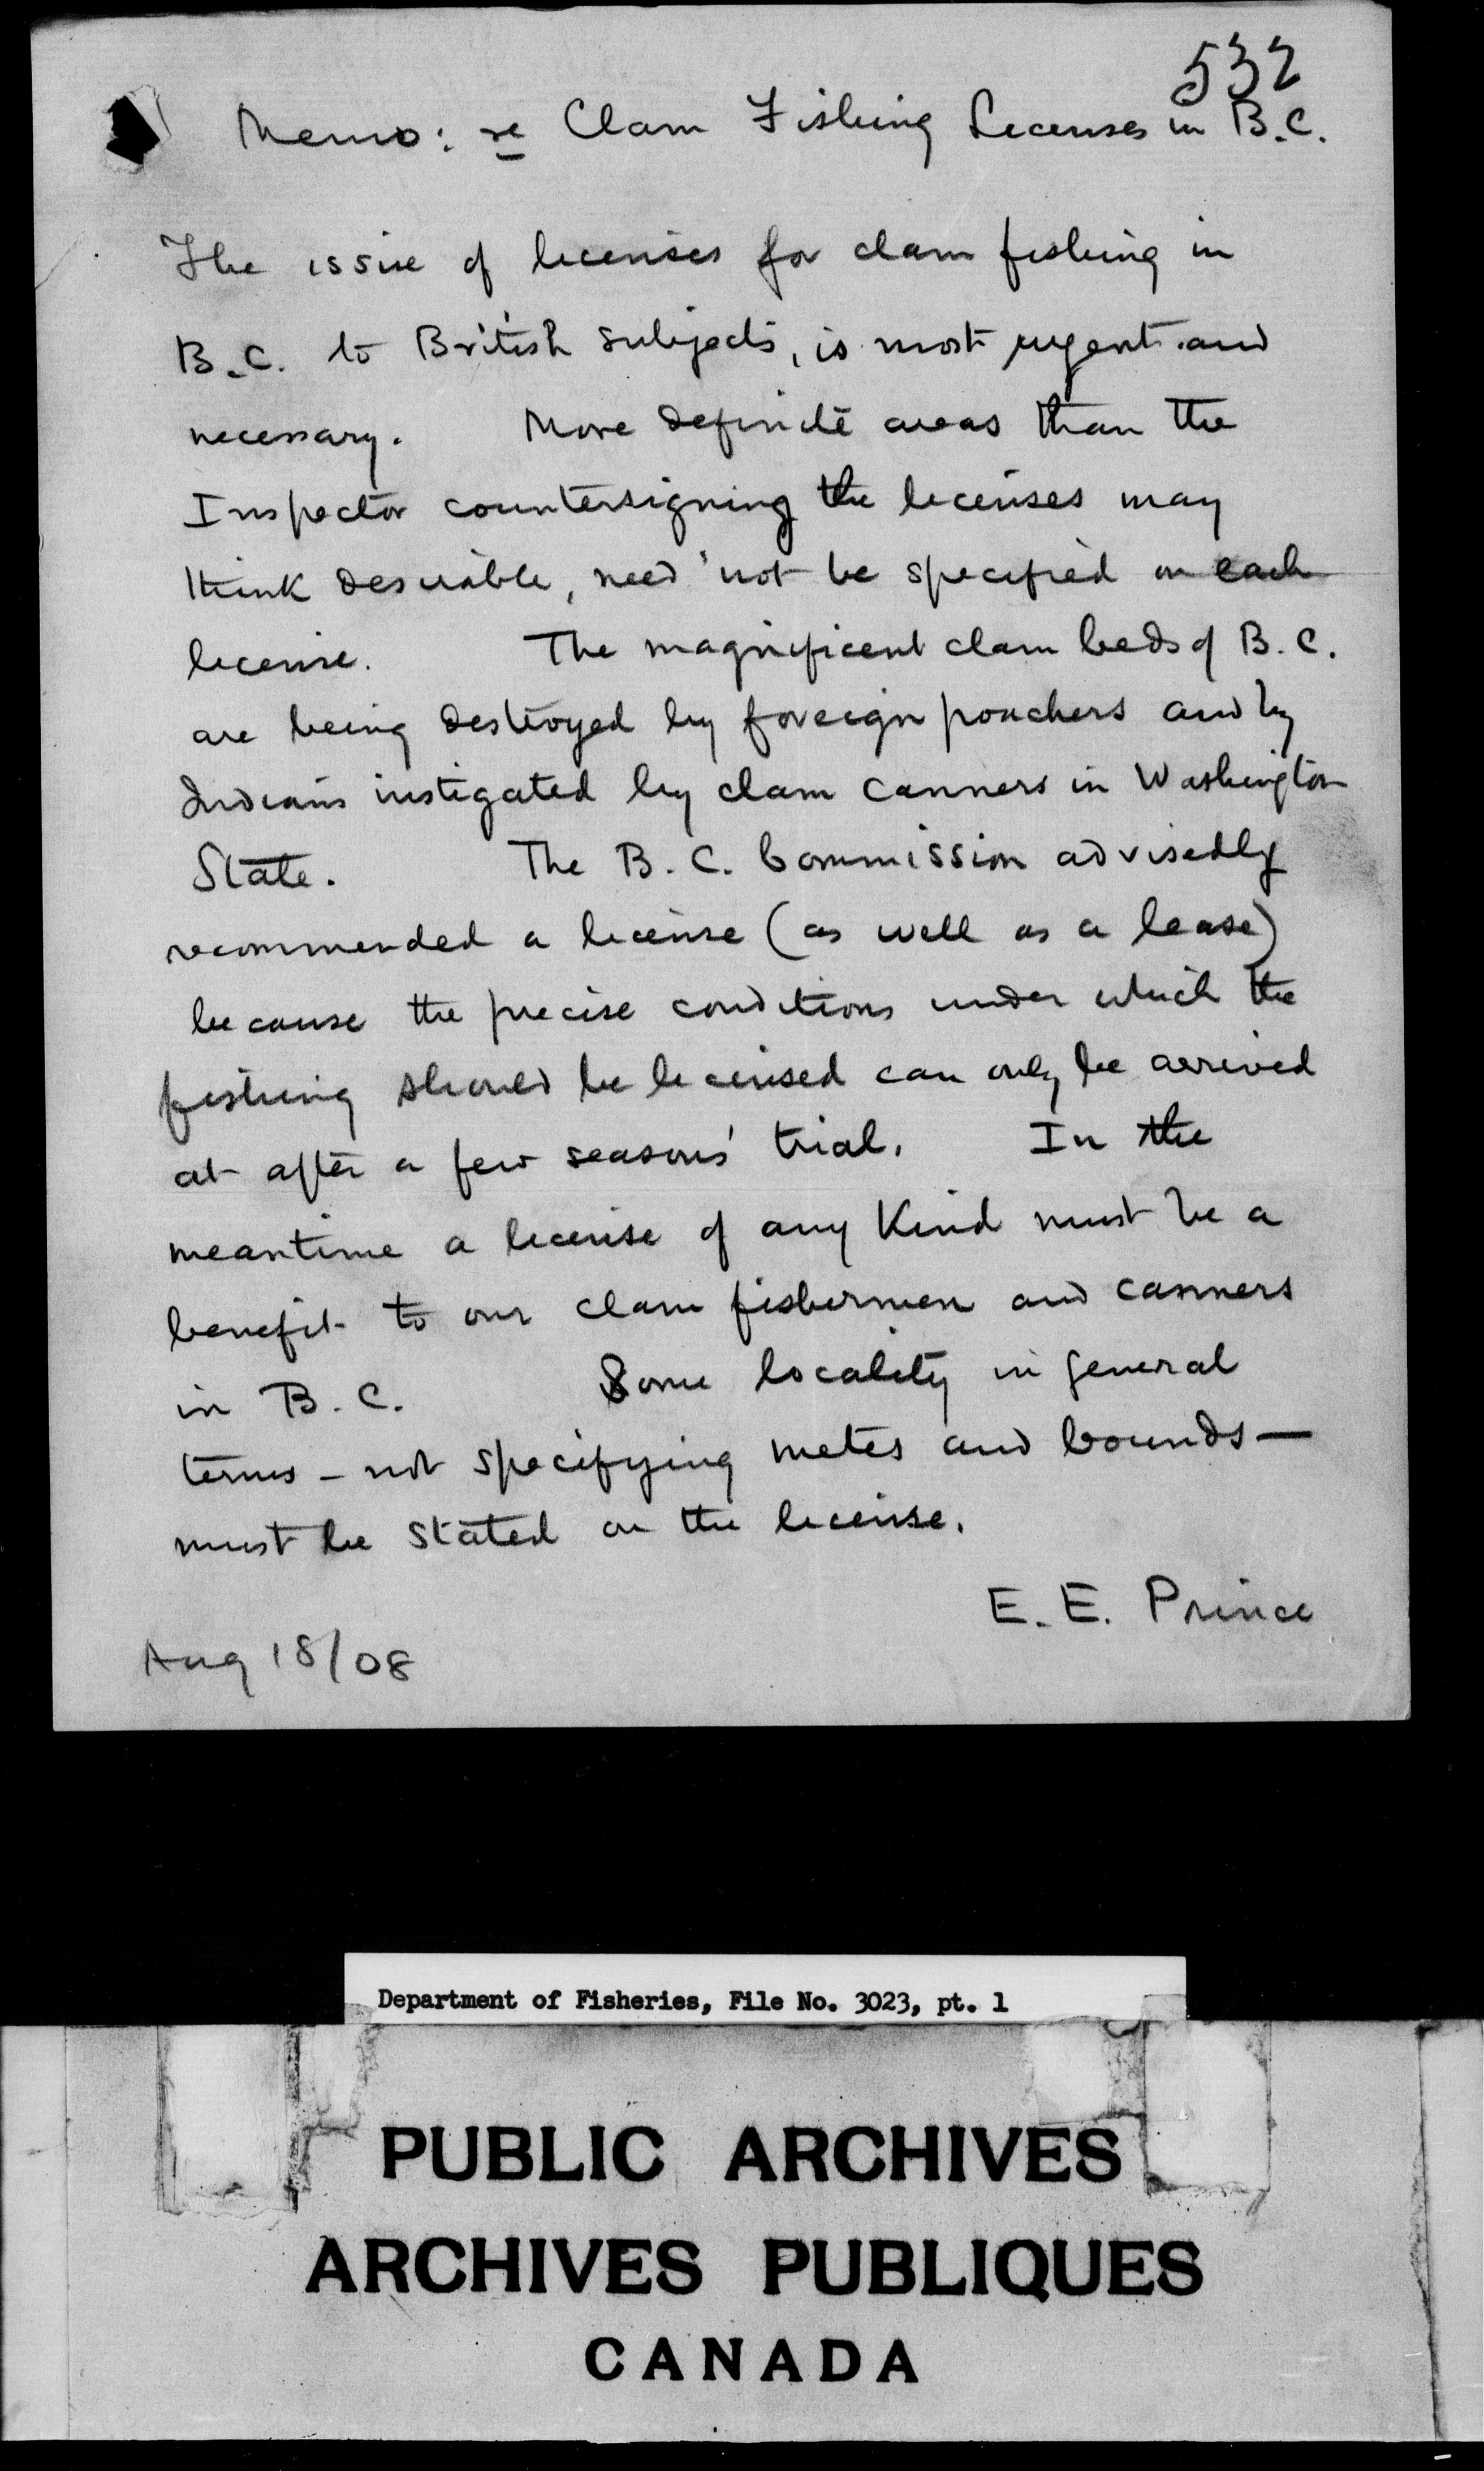 532
Memo: re Clam Fishing Licenses in B.C.
The issue of licenses for clam fishing in
B.C. to British subjects, is most urgent and
necessary. More definite areas than the
Inspector countersigning the licenses may
think desirable, need not be specified on each
license. The magnificent clam beds of B.C.
are being destroyed by foreign poachers and by
Indians instigated by clam canners in Washington
State. The B.C. Commission advisedly
recommended a license (as well as a lease)
because the precise conditions under which the
fishing should be licensed can only be arrived
at after a few seasons' trial. In the
meantime a license of any kind must be a
benefit to our clam fishermen and canners
in B.C. Some locality in general
terms - not specifying metes and bounds —
must be stated on the license.
E. E. Prince
Aug 18/08
Department of Fisheries, File No. 3023, pt. 1
PUBLIC ARCHIVES
ARCHIVES PUBLIQUES
CANADA